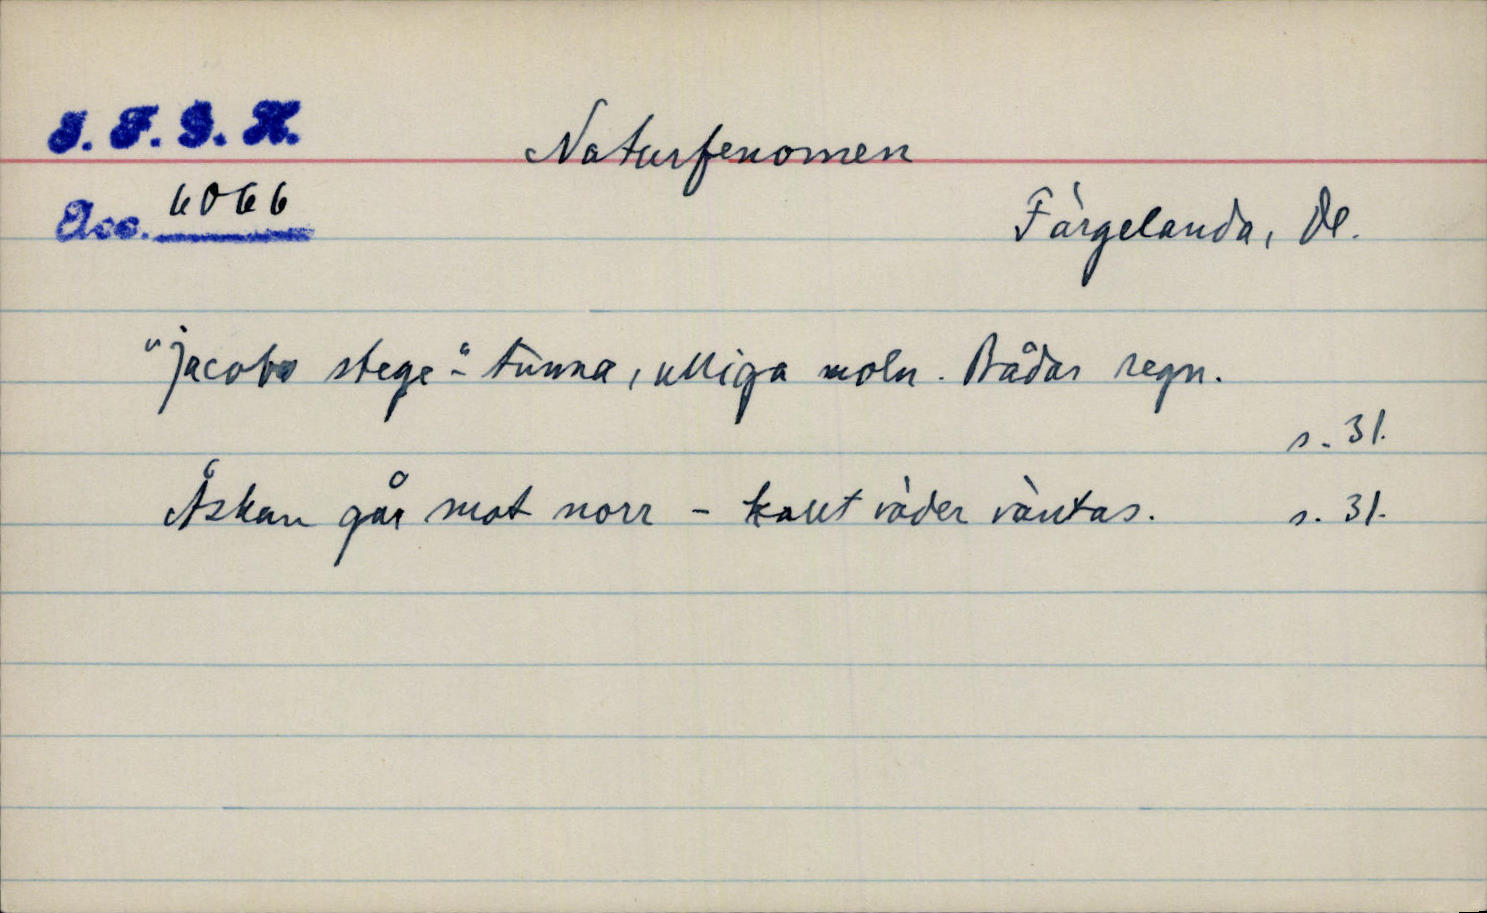 I. F. G. H.
Naturfenomen
Acc. 6066
Färgelanda, Dl.
"Jacobs stege" - tunna, ulliga moln. Bådar regn.
s. 31.
Åskan går mot norr - kallt väder väntas. s. 31.